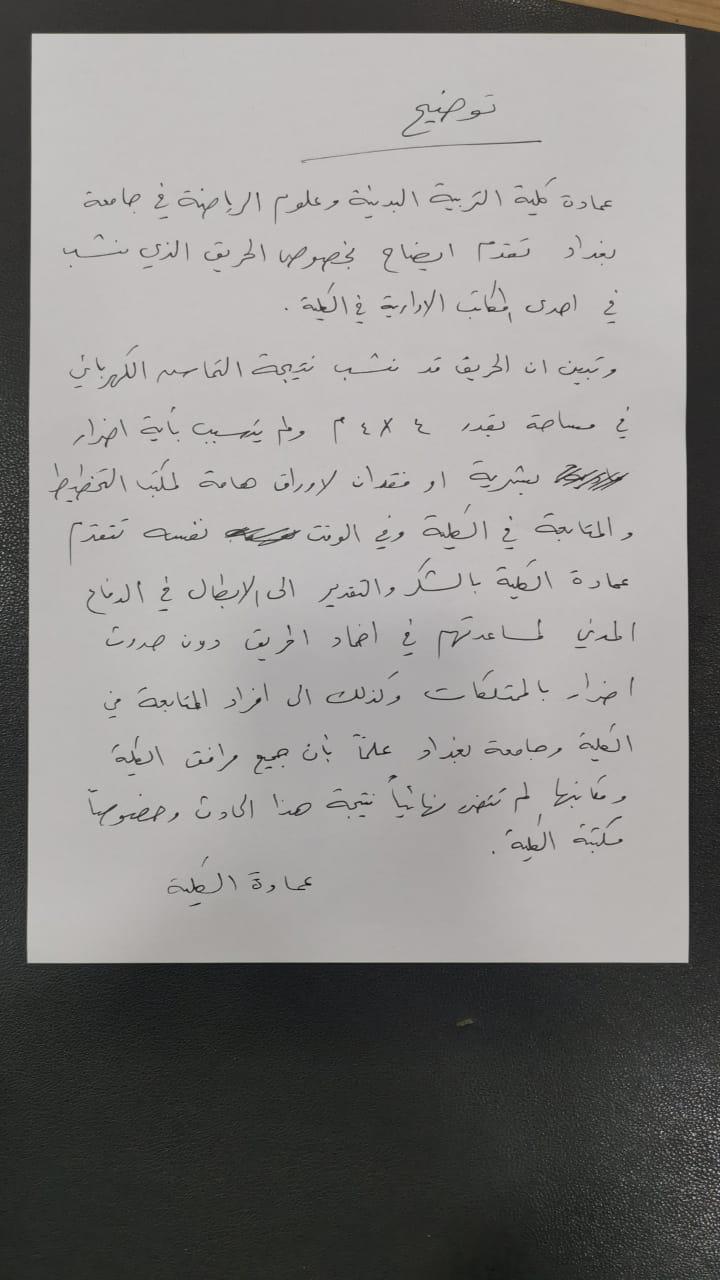 توضيح
عمادة كلية التربية البدنية وعلوم الرياضة في جامعة
بغداد تقدم ايضاح بخصوص الحريق الذي نشب
في احدى المكاتب الادارية في الكلية .
وتبين ان الحريق قد نشب نتيجة التماس الكهربائي
في مساحة تقدر ٤ × ٤ م ولم يتسبب بأية اضرار
بشرية او فقدان لاوراق هامة لمكتب التخطيط
والمتابعة في الكلية وفي الوقت نفسه تتقدم
عمادة الكلية بالشكر والتقدير الى الابطال في الدفاع
المدني لمساعدتهم في اخماد الحريق دون حدوث
اضرار بالممتلكات وكذلك الى افراد المتابعة في
الكلية وجامعة بغداد علماً بأن جميع مرافق الكلية
ومكاتبها لم تتضرر نهائياً نتيجة هذا الحادث وخصوصاً
مكتبة الكلية .
عمادة الكلية